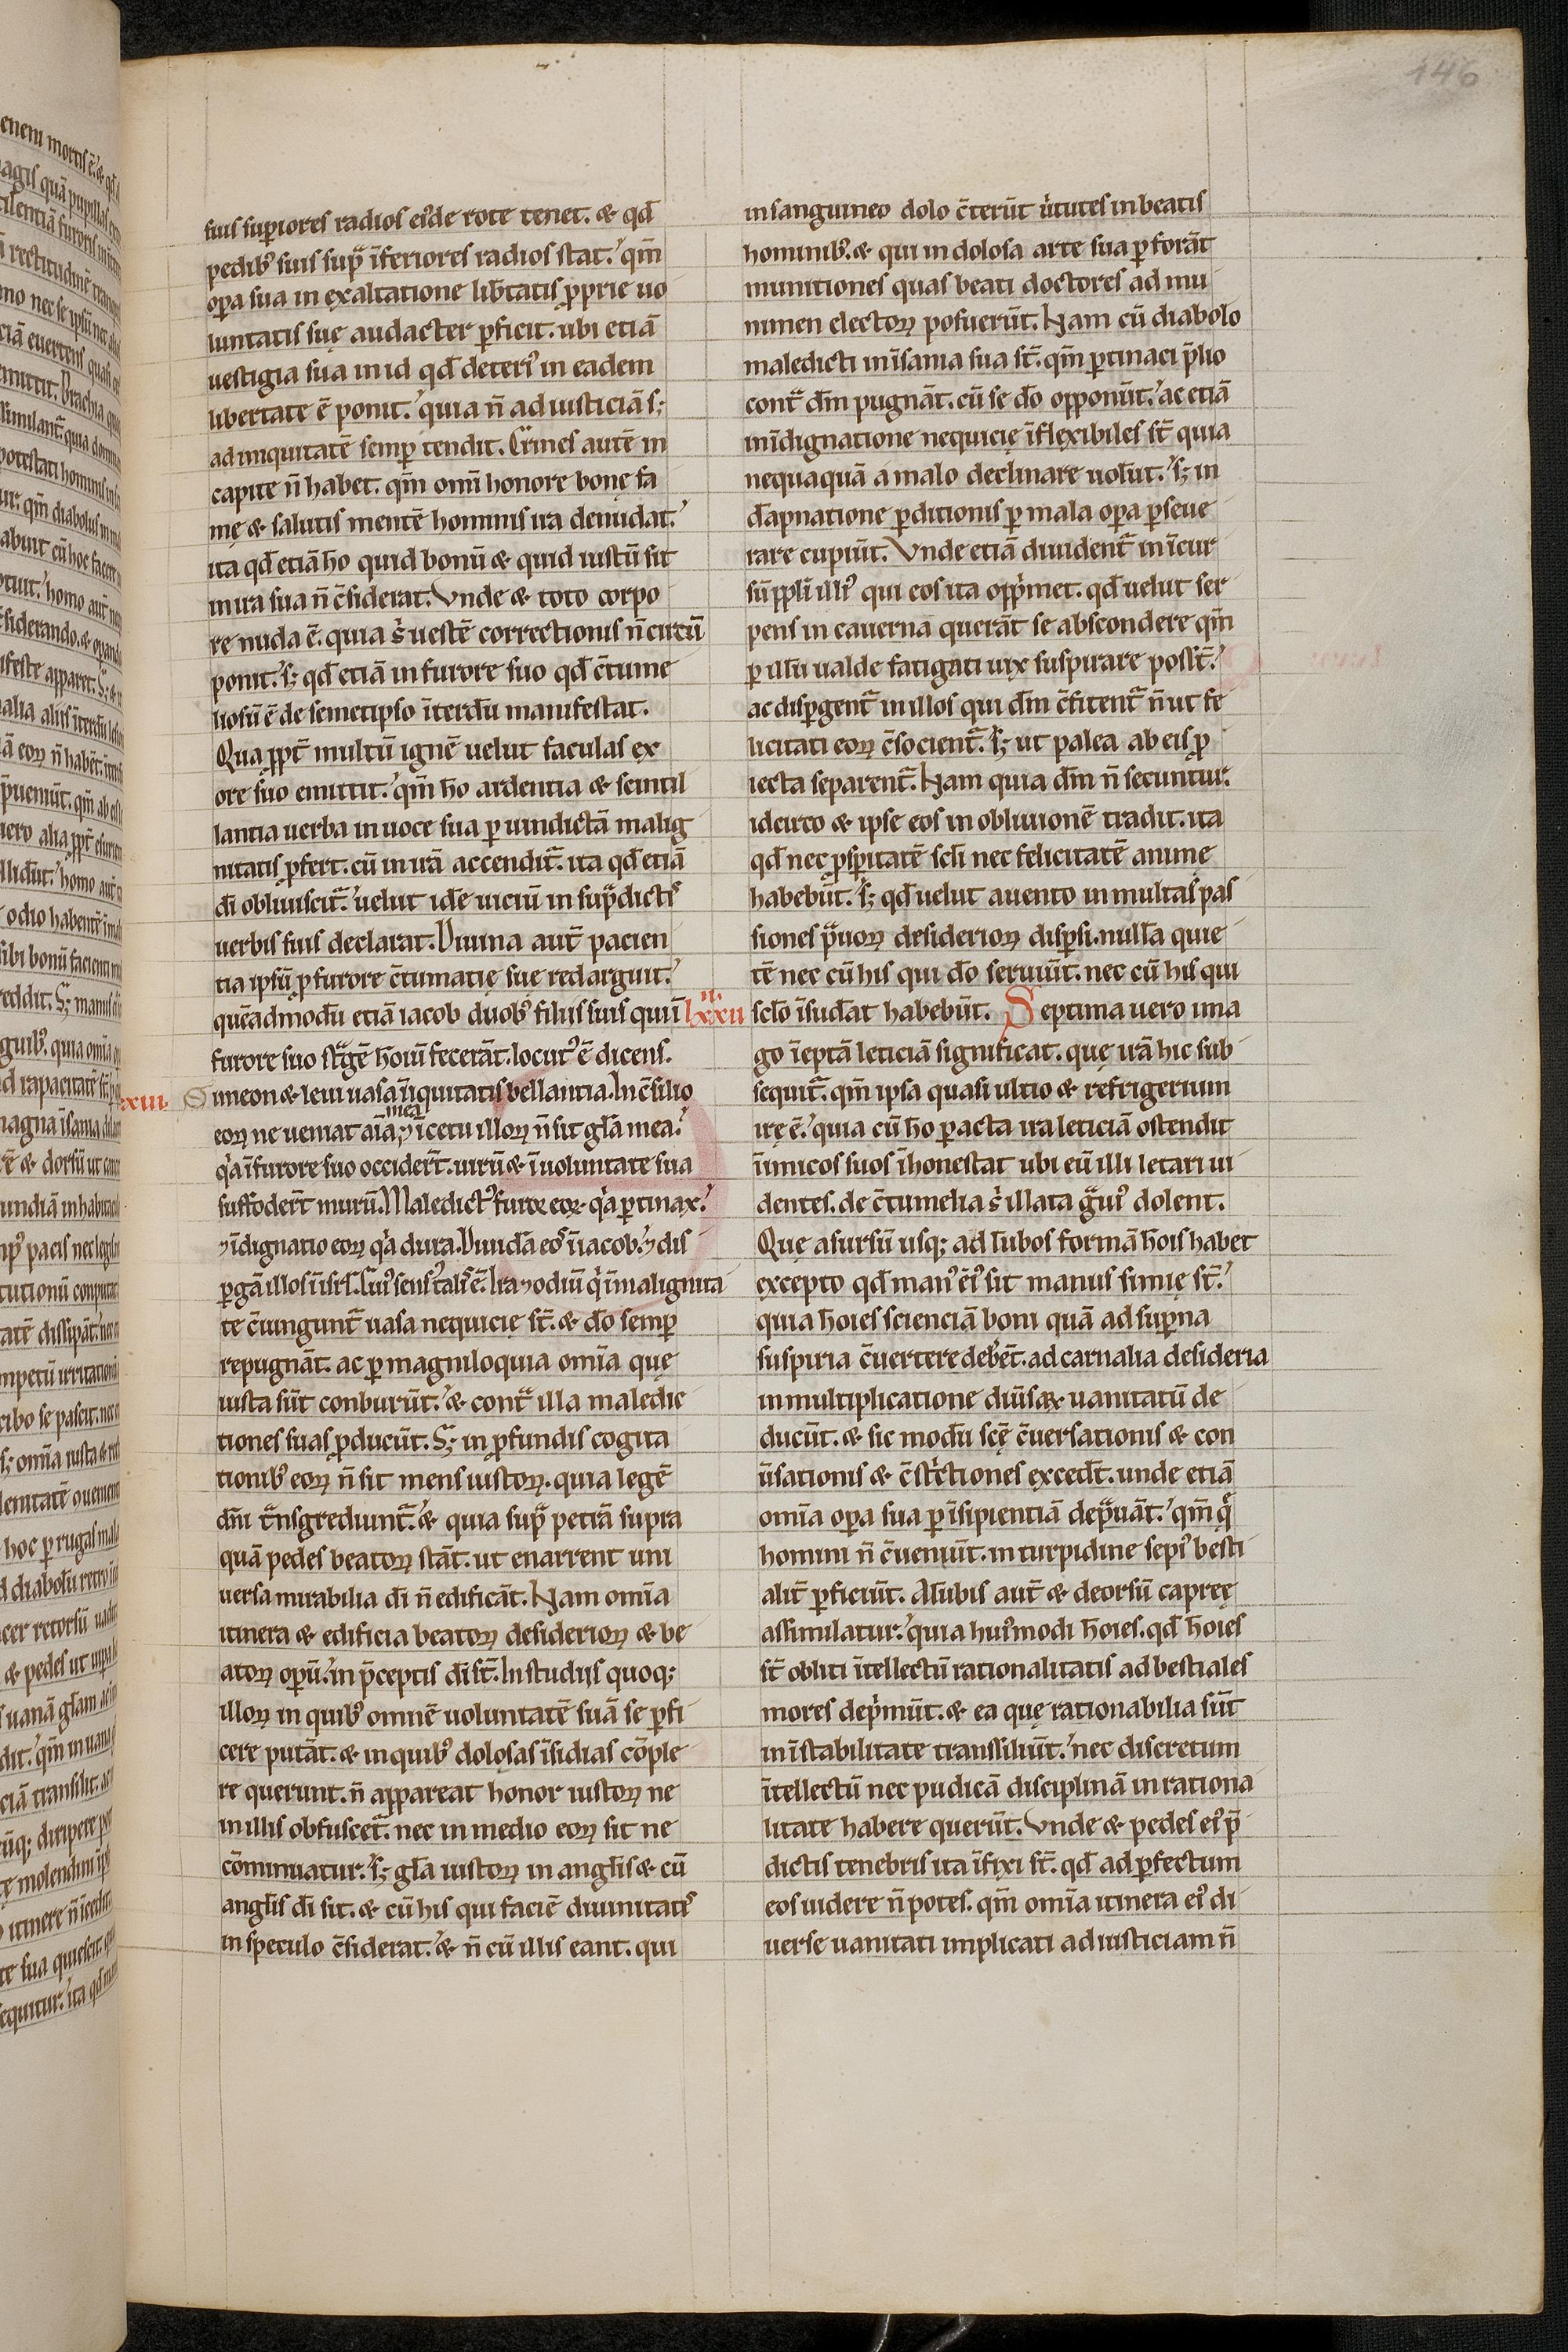 146
suis supiores radios eide rote tenet. & qd̄
pedib᷒ suis sup̄ īferiores radios stat. qm̄
opa sua in exaltatione lib̄tatis p̱prie uo
luntatis suę audacter p̱ficit. ubi etiā
uestigia sua in id qd̄ deteri᷒ in eadem
libertate ē ponit. quia n̄ ad iusticiā s;
ad iniquitatē semp̱ tendit. Crines autē in
capite n̄ habet. qm̄ omī honore bonę fa
mę & salutis mentē hominis ita denudat.
ita qd̄ etiā ho quid bonū & quid iustū sit
in ira sua n̄ c̄siderat. Vnde & toto corpo
re nuda ē. quia s̓ uestē correctionis n̄ circū
ponit. s; qd̄ etiā in furore suo qd̄ c̄tume
liosū ē de semetipso īterdū manifestat.
Qua p̱pt̄ multū ignē uelut faculas ex
ore suo emittit. qm̄ ho ardentia & scintil
lantia uerba in uoce sua p̱ uindictā malig
nitatis p̱fert. cū in irā accendit̄. ita qd̄ etiā
dī obliuiscit̄. uelut ide uiciū in sup̄dictis
uerbis suis declarat. Diuina aut̄ pacien
tia ipsū p̱ furore c̄tumatię sue redarguit.
quēadmodū etiā iacob duob᷒ filiis suis qui ī
furore suo st̄gē hoiū fecerāt. locut᷒ ē dicens.
xiii. Simeon & leui uasa īiquitatis bellantia. In c̄silio
eoꝝ ne ueniat aīa mea ⁊ ī cetu illoꝝ n̄ sit gl̄a mea.
q̓a ī furore suo occidert̄. uirū & ī uoluntate sua
suffodert̄ murū. Maledict᷒ furor eoꝝ. q̓a p̱tinax.
⁊ īdignatio eoꝝ q̓a dura. Diuidā eos ī iacob. ⁊ dis
p̱gā illos ī isrl̄. Cui᷒ sens᷒ talis ē. Ira ⁊ odiū q̓ ī malignita
te c̄iungunt̄ uasa nequicię st̄. & do semp̱
repugnāt. ac p̱ magniloquia omīa quę
iusta sūt conburūt. & cont̄ illa maledic
tiones suas p̱ducūt. S; in p̱fundis cogita
tionib᷒ eoꝝ n̄ sit mens iustoꝝ. quia legē
dm̄i t̄nsgrediunt̄. & quia sup̄ petrā supra
quā pedes beatoꝝ stāt. ut enarrent uni
uersa mirabilia dī n̄ edificāt. Nam omīa
itinera & edificia beatoꝝ desiderioꝝ & be
atoꝝ opū. in p̄ceptis dī st̄. In studiis quoq;
illoꝝ in quib᷒ omnē uoluntatē suā se p̱fi
cere putāt. & in quib᷒ dolosas īsidias cōple
re querunt. n̄ appareat honor iustoꝝ ne
in illis obfuscet̄. nec in medio eoꝝ sit ne
cōminuatur. s; gl̄a iustoꝝ in angl̄is & cū
angl̄is dī sit. & cū his qui faciē diuinitatis
in speculo c̄siderat. & n̄ cū illis eant. qui
in sanguineo dolo c̄terūt u̓tutes in beatis
hominib᷒. & qui in dolosa arte sua p̱forāt
munitiones quas beati doctores ad mu
nimen electoꝝ posuerūt. Nam cū diabolo
maledicti in īsania sua st̄. qm̄ p̱tinaci p̄lio
cont̄ dm̄ pugnāt. cū se do opponūt. ac etiā
in īdignatione nequicię īflexibiles st̄ quia
nequaquā a malo declinare uolūt. s; in
dāpnatione p̱ditionis p̱ mala opa p̱seue
rare cupiūt. Vnde etiā diuident̄ in īcur
sū ppl̄i illi᷒ qui eos ita opp̓met. qd̄ uelut ser
pens in cauerna querāt se abscondere qm̄
p̱ illū ualde fatigati uix suspirare posst̄.
ac disp̱gent̄ in illos qui dm̄ c̄fitent̄ n̄ ut fe
licitati eoꝝ c̄socient̄. s; ut palea ab eis p̱
iecta separent̄. Nam quia dm̄ n̄ secuntur.
idcirco & ipse eos in obliuionē tradit. ita
qd̄ nec p̱sp̱itatē scl̄i nec felicitatē anime
habebūt. s; qd̄ uelut a uento in multas pas
siones p̄uoꝝ desiderioꝝ disp̱si. nullā quie
tē nec cū his qui do seruiūt. nec cū his qui
lxxii. scl̄o īsudāt habebūt. Septima uero ima
go īeptā leticiā significat. quę irā hic sub
sequit̄. qm̄ ipsa quasi ultio & refrigerium
irę ē. quia cū ho p̱acta ira leticiā ostendit
īimicos suos īhonestat ubi eū illi letari ui
dentes. de c̄tumelia s̓ illata g̓ui᷒ dolent.
Que a sursū usq; ad lūbos formā hois habet
excepto qd̄ man᷒ ei᷒ sit manus simię st̄.
quia hoies scienciā boni quā ad sup̱na
suspiria c̄uertere debēt. ad carnalia desideria
in multiplicatione diūsaꝝ uanitatū de
ducūt. & sic modū scę̄ c̄uersationis & con
ūsationis & c̄st̓ctiones excedt̄. unde etiā
omīa opa sua p̱ īsipientiā dep̄uāt. qm̄ q̄
homini n̄ c̄ueniūt. in turpidine sepi᷒ besti
alit̄ p̱ficiūt. A lūbis aut̄ & deorsū capreę
assimilatur. quia hui᷒modi hoies. qd̄ hoies
st̄ obliti ītellectū rationalitatis ad bestiales
mores dep̓mūt. & ea quę rationabilia sūt
in īstabilitate transiliūt. nec discretum
ītellectū nec pudicā disciplinā in rationa
litate habere querūt. Vnde & pedes ei᷒ p̄
dictis tenebris ita īfixi st̄. qd̄ ad p̱fectum
eos uidere n̄ potes. qm̄ omīa itinera ei᷒ di
uerse uanitati implicati ad iusticiam n̄